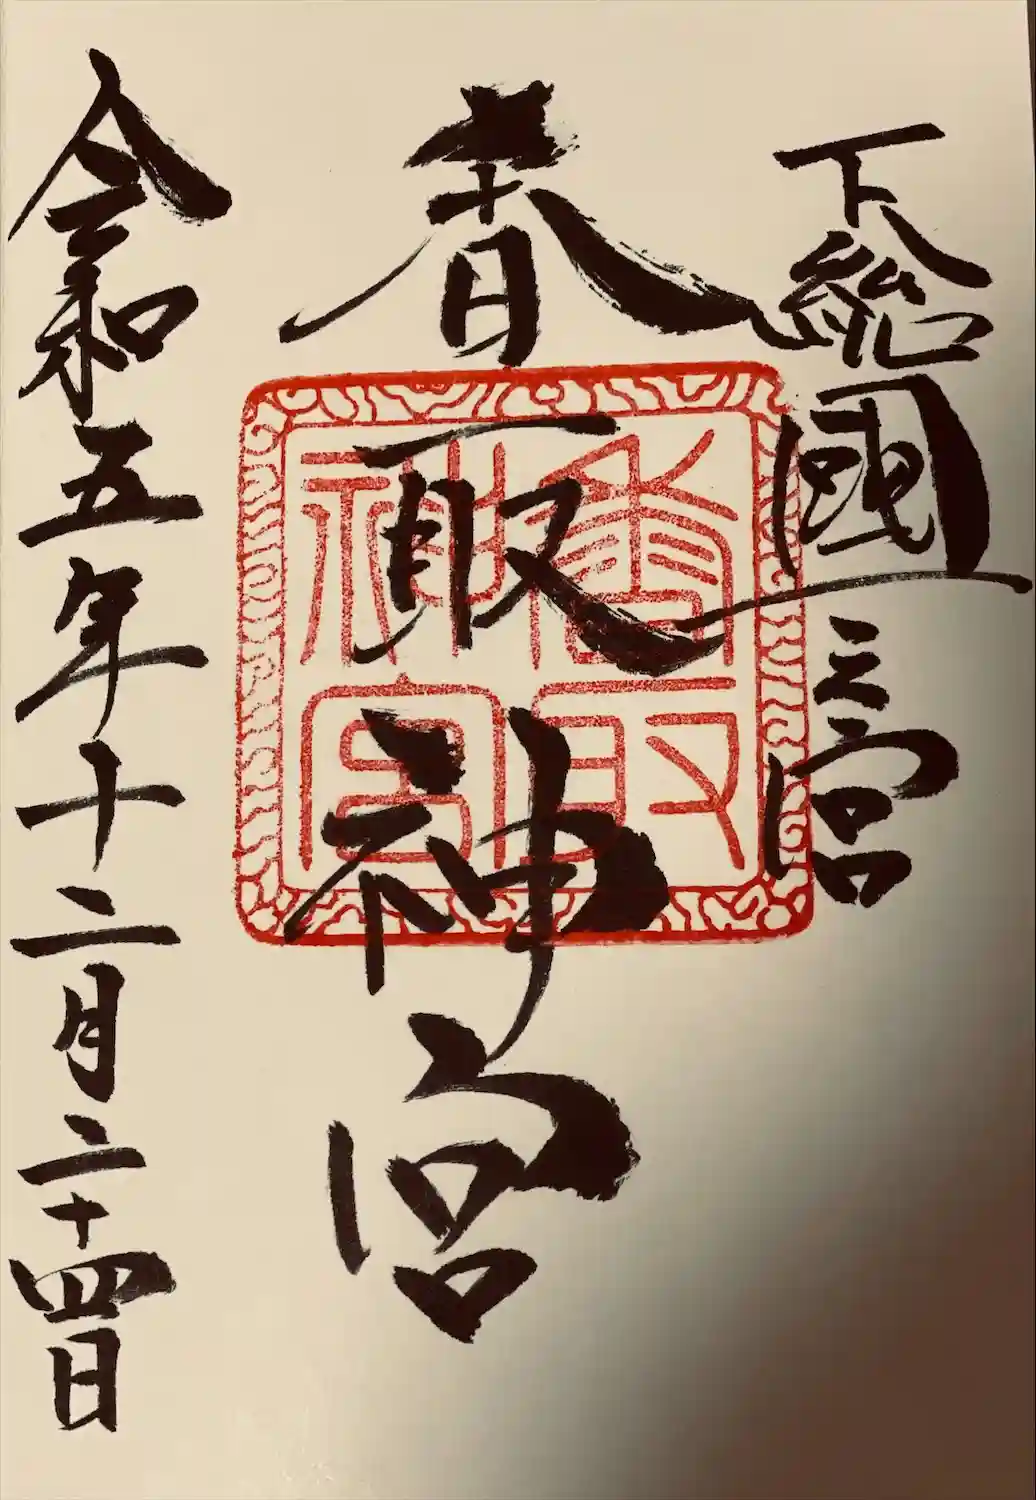 下総國一之宮
香取神宮
香取神宮
令和五年十二月二十四日